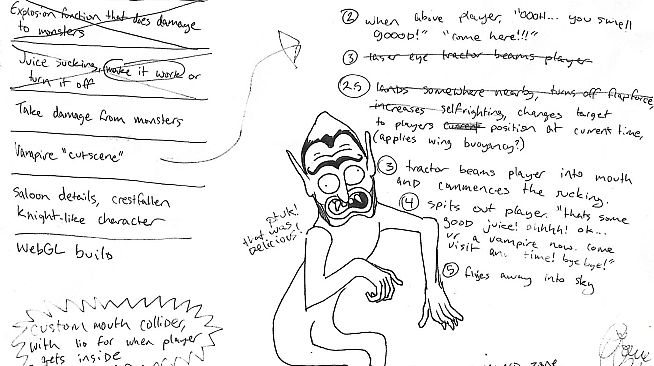 Explosion function that does damage
to monsters
Juice sucking, make it work or
turn it off
Take damage from monsters
Vampire "cutscene"
Saloon details, crestfallen
Knight-like character
WebGL build
custom mouth collider,
with lid for when player
gets inside
② when above player, "OOOH... you smell
goood!" "come here!!!"
③ laser eye tractor beams player
2.5 lands somewhere nearby, turns off flapforce,
increases selfrighting, changes target
to players current position at current time,
(applies wing buoyancy?)
③ tractor beams player into mouth
and commences the sucking.
④ spits out player. "thats some
good juice! ohhhh! ok...
ur a vampire now. come
visit an. time! bye bye!"
⑤ flies away into sky
ptuk!
that was
Delicious!